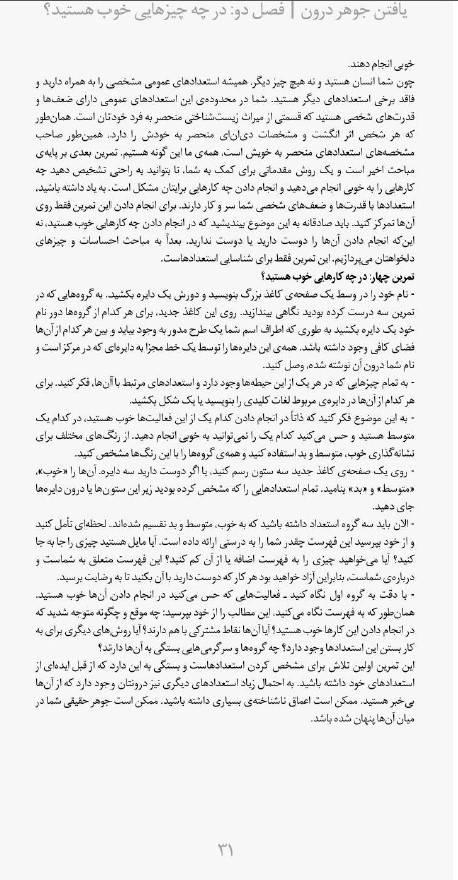 یافتن جوهر درون | فصل دو: در چه چیزهایی خوب هستید؟
خوبی انجام دهند.
چون شما انسان هستید و نه هیچ چیز دیگر، همیشه استعدادهای عمومی مشخصی را به همراه دارید و
فاقد برخی استعدادهای دیگر هستید. شما در محدوده‌ی این استعدادهای عمومی دارای ضعف‌ها و
قدرت‌های شخصی هستید که قسمتی از میراث زیست‌شناختی منحصر به فرد خودتان است. همان‌طور
که هر شخص اثر انگشت و مشخصات دی‌ان‌ای منحصر به خودش را دارد، همین‌طور صاحب
مشخصه‌های استعدادهای منحصر به خویش است. همه‌ی ما این گونه هستیم. تمرین بعدی بر پایه‌ی
مباحث اخیر است و یک روش مقدماتی برای کمک به شما، تا بتوانید به راحتی تشخیص دهید چه
کارهایی را به خوبی انجام می‌دهید و انجام دادن چه کارهایی برایتان مشکل است. به یاد داشته باشید،
استعدادها با قدرت‌ها و ضعف‌های شخصی شما سر و کار دارند. برای انجام دادن این تمرین فقط روی
آن‌ها تمرکز کنید. باید صادقانه به این موضوع بیندیشید که در انجام دادن چه کارهایی خوب هستید، نه
این‌که انجام دادن آن‌ها را دوست دارید یا دوست ندارید. بعداً به مباحث احساسات و چیزهای
دلخواهتان می‌پردازیم. این تمرین فقط برای شناسایی استعدادهاست.
تمرین چهار: در چه کارهایی خوب هستید؟
- نام خود را در وسط یک صفحه‌ی کاغذ بزرگ بنویسید و دورش یک دایره بکشید. به گروه‌هایی که در
تمرین سه درست کرده بودید نگاهی بیندازید. روی این کاغذ جدید، برای هر کدام از گروه‌ها دور نام
خود یک دایره بکشید به طوری که اطراف اسم شما یک طرح مدور به وجود بیاید و بین هر کدام از آن‌ها
فضای کافی وجود داشته باشد. همه‌ی این دایره‌ها را توسط یک خط مجزا به دایره‌ای که در مرکز است و
نام شما درون آن نوشته شده، وصل کنید.
- به تمام چیزهایی که در هر یک از این حیطه‌ها وجود دارد و استعدادهای مرتبط با آن‌ها، فکر کنید. برای
هر کدام از آن‌ها در دایره‌ی مربوط لغات کلیدی را بنویسید یا یک شکل بکشید.
- به این موضوع فکر کنید که ذاتاً در انجام دادن کدام یک از این فعالیت‌ها خوب هستید، در کدام یک
متوسط هستید و حس می‌کنید کدام یک را نمی‌توانید به خوبی انجام دهید. از رنگ‌های مختلف برای
نشانه‌گذاری خوب، متوسط و بد استفاده کنید و همه‌ی گروه‌ها را با این رنگ‌ها مشخص کنید.
- روی یک صفحه‌ی کاغذ جدید سه ستون رسم کنید، یا اگر دوست دارید سه دایره. آن‌ها را «خوب»،
«متوسط» و «بد» بنامید. تمام استعدادهایی را که مشخص کرده بودید زیر این ستون‌ها یا درون دایره‌ها
جای دهید.
- الان باید سه گروه استعداد داشته باشید که به خوب، متوسط و بد تقسیم شده‌اند. لحظه‌ای تأمل کنید
و از خود بپرسید این فهرست چقدر شما را به درستی ارائه داده است. آیا مایل هستید چیزی را جا به جا
کنید؟ آیا می‌خواهید چیزی را به فهرست اضافه یا از آن کم کنید؟ این فهرست متعلق به شماست و
درباره‌ی شماست، بنابراین آزاد خواهید بود هر کار که دوست دارید با آن بکنید تا به رضایت برسید.
- با دقت به گروه اول نگاه کنید ـ فعالیت‌هایی که حس می‌کنید در انجام دادن آن‌ها خوب هستید.
همان‌طور که به فهرست نگاه می‌کنید، این مطالب را از خود بپرسید: چه موقع و چگونه متوجه شدید که
در انجام دادن این کارها خوب هستید؟ آیا آن‌ها نقاط مشترکی با هم دارند؟ آیا روش‌های دیگری برای به
کار بستن این استعدادها وجود دارد؟ چه گروه‌ها و سرگرمی‌هایی بستگی به آن‌ها دارند؟
این تمرین اولین تلاش برای مشخص کردن استعدادهاست و بستگی به این دارد که از قبل ایده‌ای از
استعدادهای خود داشته باشید. به احتمال زیاد استعدادهای دیگری نیز درونتان وجود دارد که از آن‌ها
بی‌خبر هستید. ممکن است اعماق ناشناخته‌ی بسیاری داشته باشید. ممکن است جوهر حقیقی شما در
میان آن‌ها پنهان شده باشد.
۳۱